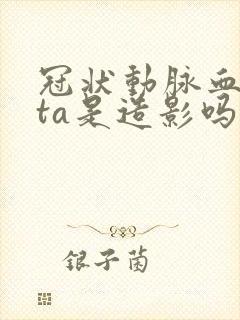 冠状動脉血
ta是造影吗
银子菌